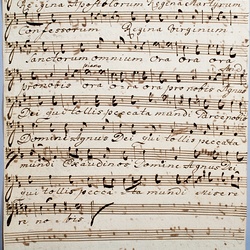 Regina Apostolorum Regina Martyrum
Confessorum Regina Virginum
Sanctorum omnium Ora ora ora
pro nobis ora ora ora pro nobis Agnus
Dei qui tollis peccata mundi Parce nobis
Domine Agnus Dei qui tollis peccata
mundi Exaudi nos Domine Agnus Dei
qui tollis pecca ta mundi misere
re no bis